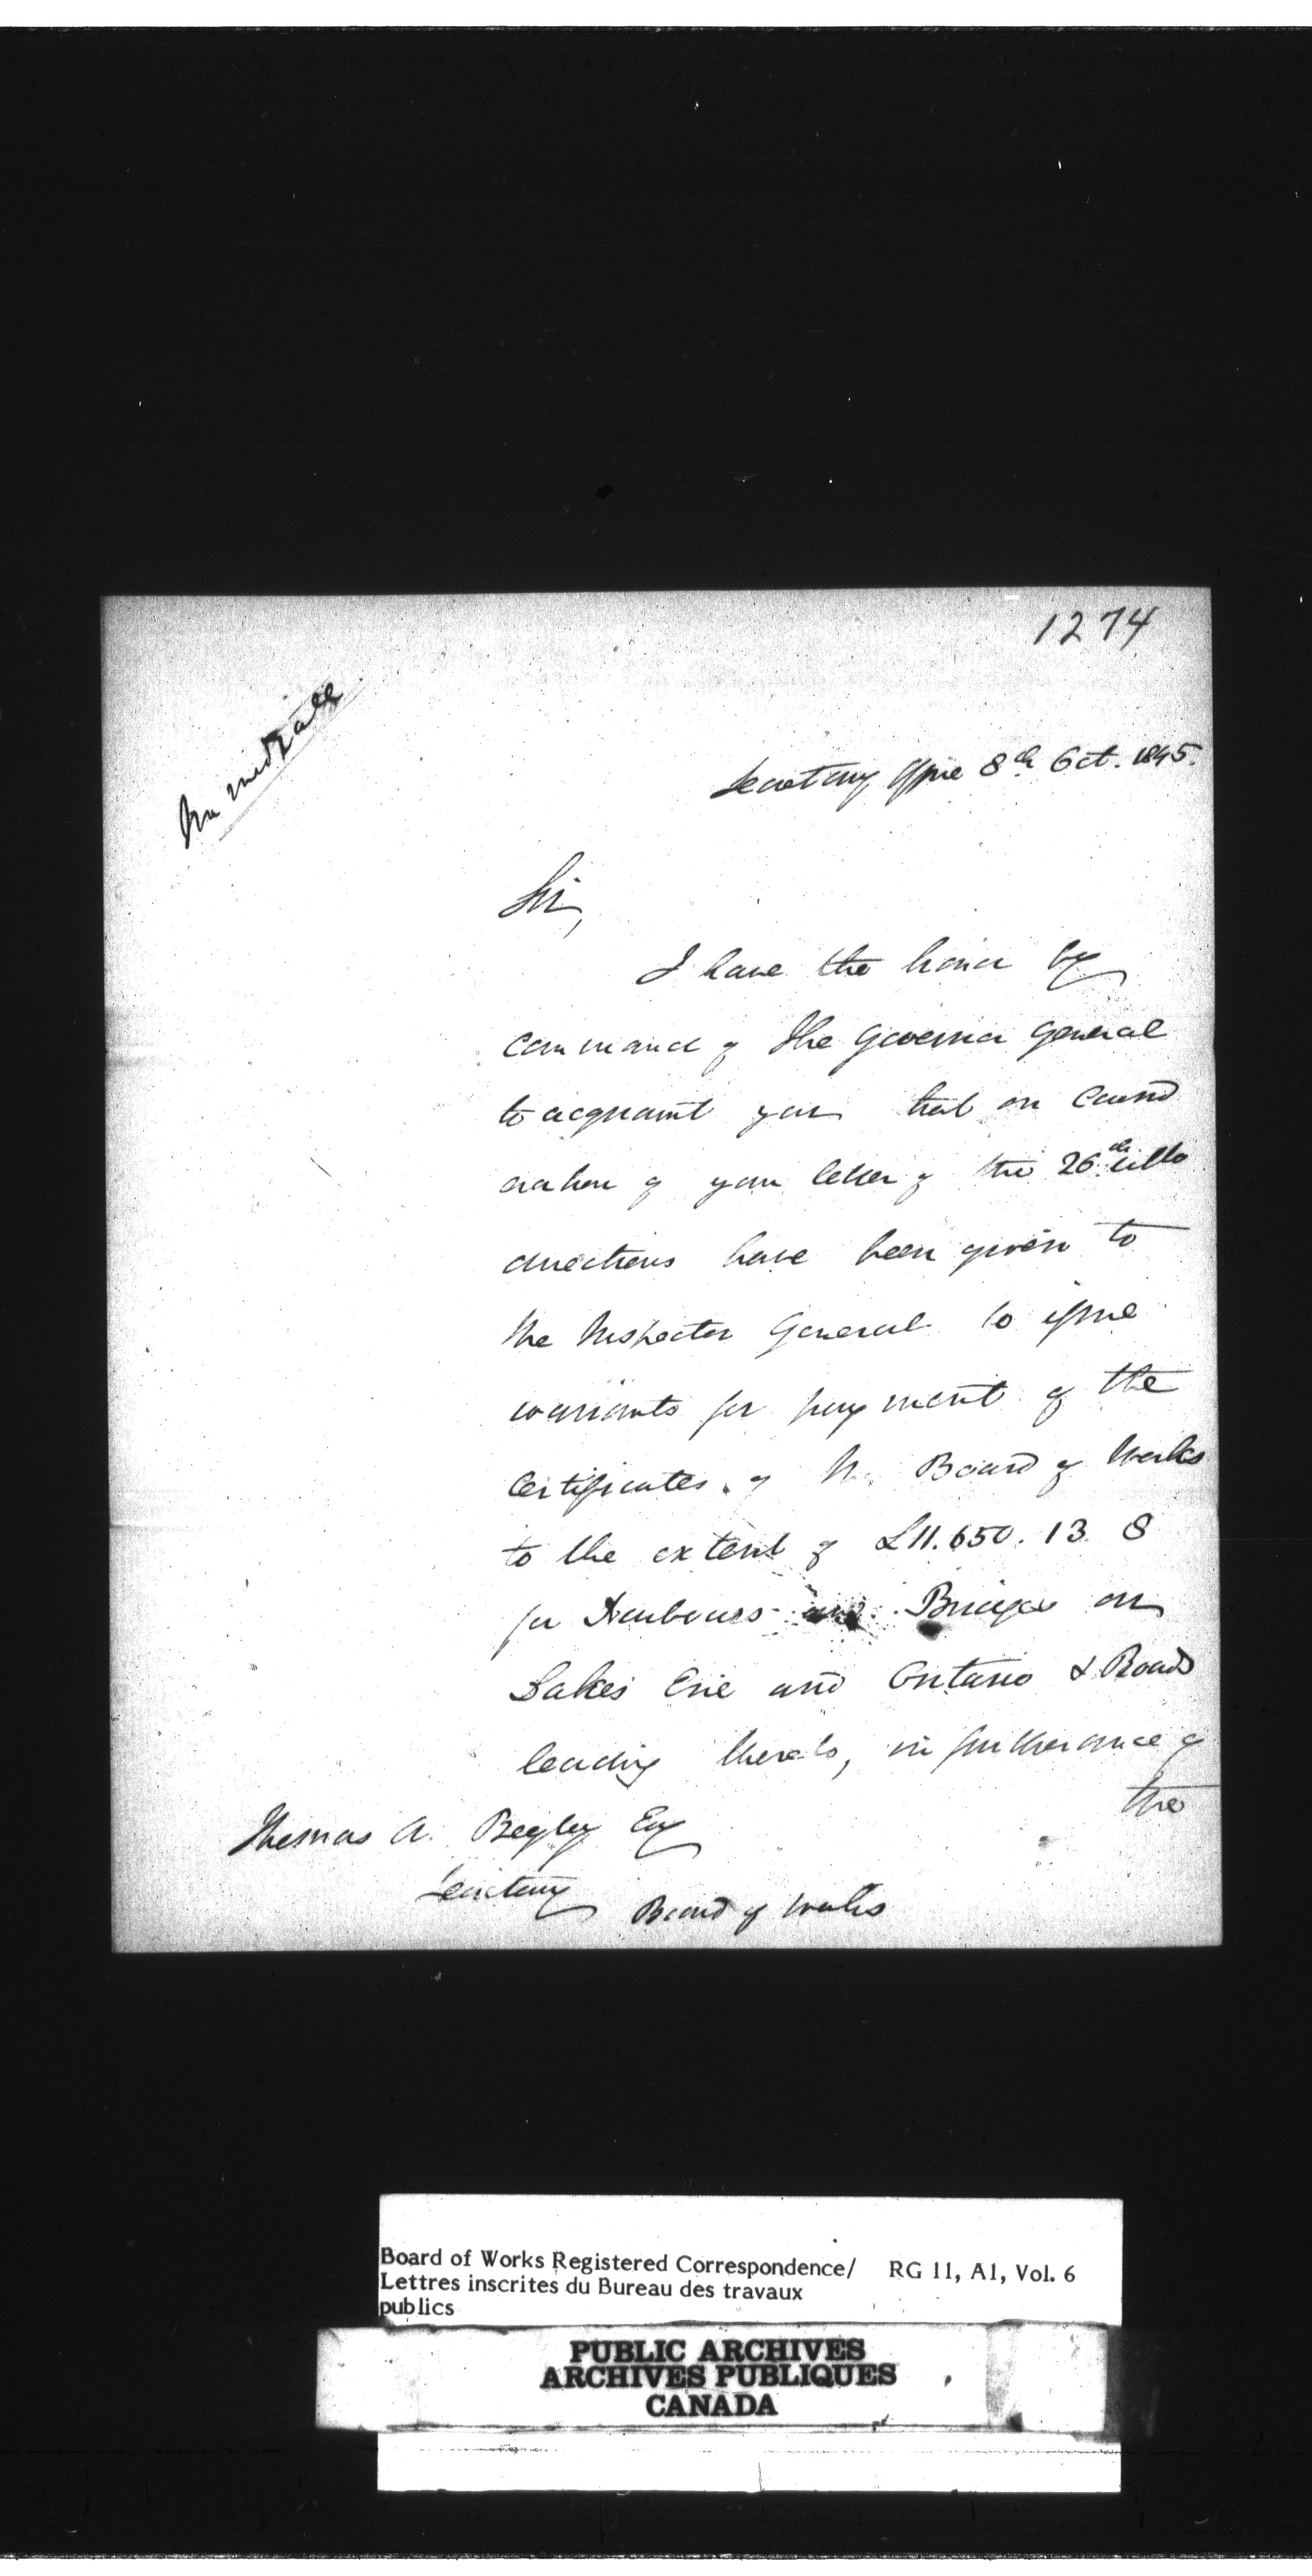 1274
Immediate
Secretary Office 8th Oct. 1845.
Sir,
I have the honor by
Command of the Governor General
to acquaint you that on Consid
eration of your letter of the 26th ulto
directions have been given to
the Inspector General to issue
warrants for payment of the
Certificates of the Board of Works
to the extent of £11.650. 13 8
for Harbours and Bridges on
Lakes Erie and Ontario & Roads
leading thereto, in furtherance of
the
Thomas A. Begley Esq
Secretary
Board of Works
Board of Works Registered Correspondence/ RG 11, A1, Vol. 6
Lettres inscrites du Bureau des travaux
publics
PUBLIC ARCHIVES
ARCHIVES PUBLIQUES
CANADA